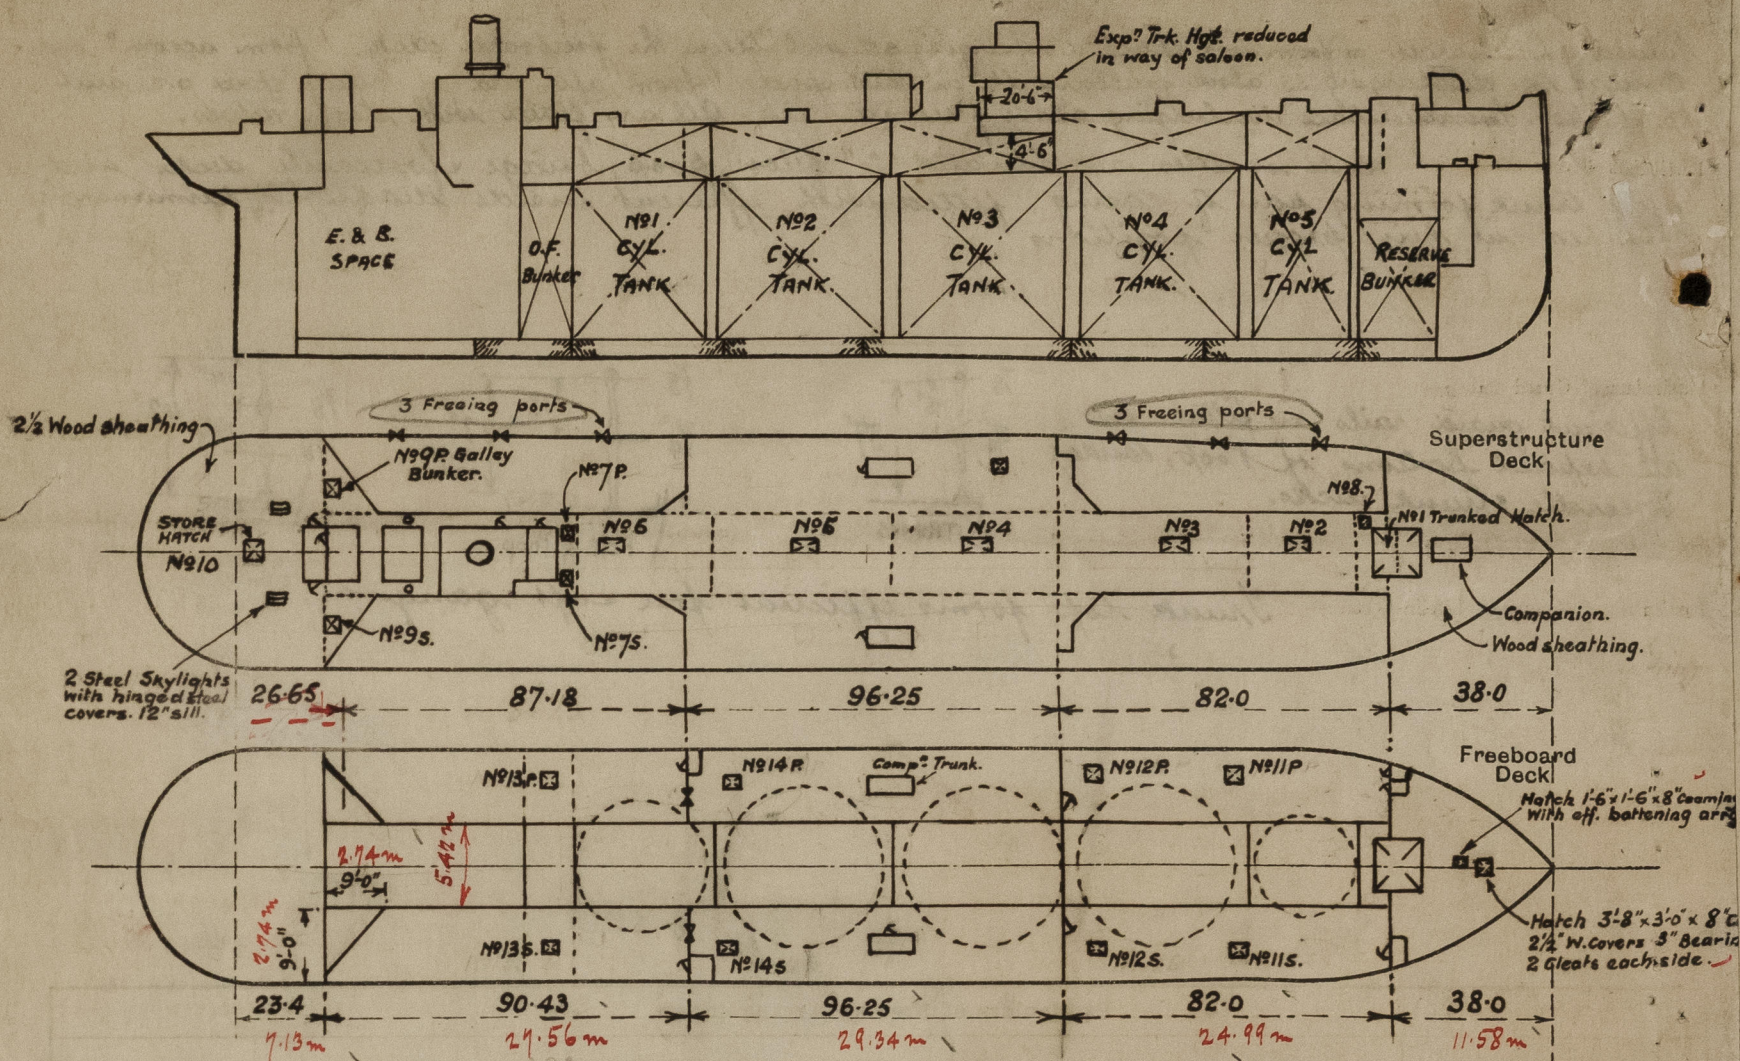 Exp? Trk. Hgt. reduced
in way of saloon.
20'-6"
4'-6"
E. & B.
SPACE
O.F.
Bunker
Nº1
CYL.
TANK
Nº2
CYL.
TANK.
Nº3
CYL.
TANK
Nº4
CYL.
TANK.
Nº5
CYL
TANK
RESERVE
BUNKER
2½ Wood sheathing
3 Freeing ports
3 Freeing ports
Superstructure
Deck
Nº9P. Galley
Bunker.
Nº7P.
Nº8.
STORE
HATCH
Nº10
Nº6
Nº5
Nº4
Nº3
Nº2
Nº1 Trunked Hatch.
Nº9S.
Nº7S.
Companion.
Wood sheathing.
2 Steel Skylights
with hinged steel
covers. 12" sill.
26·65
87·18
96·25
82·0
38·0
Freeboard
Deck
Nº13P.
Nº14P.
Compn Trunk.
Nº12P.
Nº11P
Hatch 1'-6"x1'-6"x8" Coaming
With eff. battening
2.74m
9'-0"
5.42m
2.74m
9'-0"
Nº13S.
Nº14S
Nº12S.
Nº11S.
Hatch 3'-8"x3'-0"x8"
2½" W. Covers 3"
2 Cleats each side.
23·4
90·43
96·25
82·0
38·0
7.13m
27.56m
29.34m
24.99m
11.58m